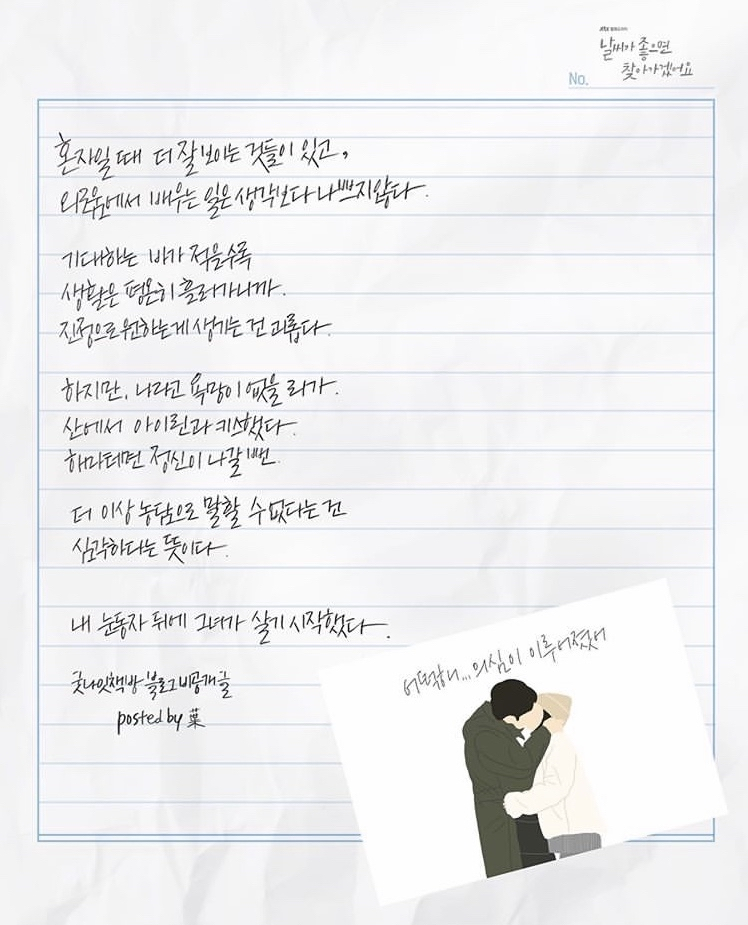 날씨가 좋으면
찾아가겠어요
No.
혼자일 때 더 잘 보이는 것들이 있고,
외로움에서 배우는 일은 생각보다 나쁘지 않다.
기대하는 바가 적을수록
생활은 평온히 흘러가니까.
진정으로 원하는 게 생기는 건 괴롭다.
하지만, 나라고 욕망이 없을 리가.
산에서 아이린과 키스했다.
하마터면 정신이 나갈 뻔.
더 이상 농담으로 말할 수 없다는 건
심각하다는 뜻이다.
내 눈동자 뒤에 그녀가 살기 시작했다.
굿나잇책방 블로그 비공개글
posted by 葉
어떡하니...의심이 이루어졌어